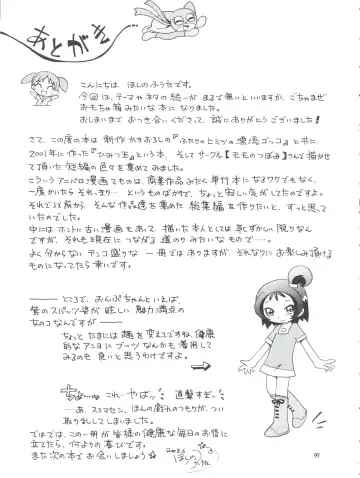 あとがき
こんにちは、ほしのふうたです。
今回は、テーマやネタの統一がまるで無いといいますか、ごちゃまぜ
おもちゃ箱みたいな本になりました。
おしまいまでおつき合いくださって、誠にありがとうございました!
さて、この度の本は新作かきおろしの『ふたりのヒミツの環境ゴッコ』と共に、
2001年に作った『ひみつ玉』という本、そしてサークル【モモのつぼみ】さんで描かせ
て頂いた短編の色々を集めてみました。
こういうアニパロ漫画てものは、商業作品みたく単行本になるワケでもなく、
一度かいたらそれっきり…というものばかりで、ちょっと寂しい気がしてたのですよ。
それで以前から、そんな作品達を集めた総集編を作りたいと、ずっと思って
いたのでした。
中にはホントに古い漫画もあって、描いた本人としては恥ずかしい限りなん
ですが、それも現在につながる道のりみたいなもので…。
よく分からないテンコ盛りな一冊ではありますが、それなりにお楽しみ頂ける
ものになってたら幸いです。
ところで、おんぷちゃんといえば、
紫のスパッツ姿が眩しい魅力満点の
女のコなんですが
ちょっとたまには趣を変えてですね、健康
的なアニヨにブーツなんかも着用して
みるのも良いと思うわけですよ。
これーヤバッ 直撃すぎ。
……あ、スミマセン。ほんの戯れのつもりが、つい
取り乱してしまいました。
ではでは、この一冊が皆様の健康な毎日のお役に
立てたら、何よりの喜びです。
また次の本でお会いしましょう☆
ほしのふうた
97